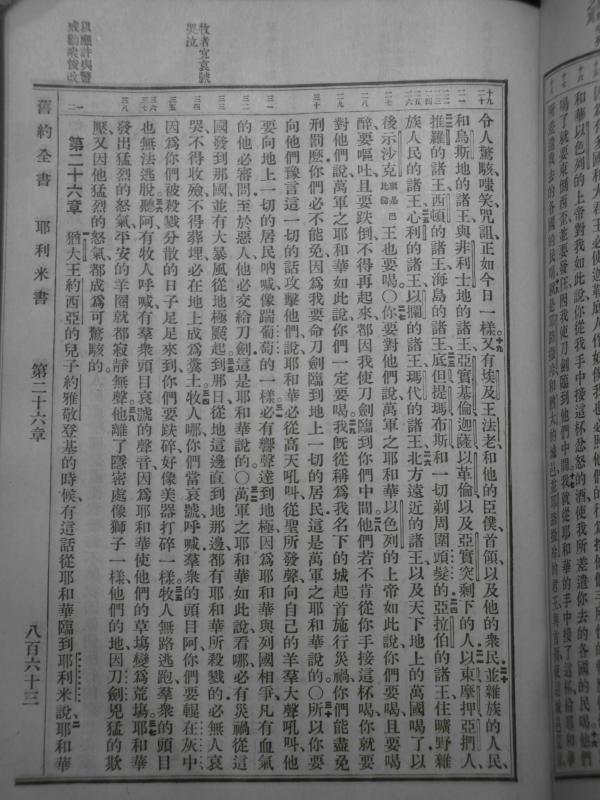 和華以色列的上帝對我如此說你從我手中接這杯忿怒的酒使我所差遣你去的各國的民喝他們
喝了就要東倒西歪並要發狂因我使刀劍臨到他們中間我就從耶和華的手中接了這杯給耶和華
令人驚駭嗤笑咒詛正如今日一樣又有埃及王法老和他的臣僕首領以及他的衆民並雜族的人民、
和烏斯地的諸王與非利士地的諸王亞實基倫迦薩以革倫以及亞實突剩下的人以東摩押亞捫人、
推羅的諸王西頓的諸王海島的諸王底但提瑪布斯和一切剃周圍頭髮的亞拉伯的諸王住曠野雜
族人民的諸王心利的諸王以攔的諸王瑪代的諸王北方遠近的諸王以及天下地上的萬國喝了以
後示沙克就是巴比倫王也要喝○你要對他們說萬軍之耶和華以色列的上帝如此說你們要喝且要喝
醉要嘔吐且要跌倒不得再起來都因我使刀劍臨到你們中間他們若不肯從你手接這杯喝你就要
對他們說萬軍之耶和華如此說你們一定要喝我旣從稱爲我名下的城起首施行災禍你們能盡免
刑罰麼你們必不能免因爲我要命刀劍臨到地上一切的居民這是萬軍之耶和華說的○所以你要
向他們豫言這一切的話攻擊他們說耶和華必從高天吼叫從聖所發聲向自己的羊羣大聲吼叫他
要向地上一切的居民吶喊像踹葡萄的一樣必有響聲達到地極因爲耶和華與列國相爭凡有血氣
的他必審問至於惡人他必交給刀劍這是耶和華說的○萬軍之耶和華如此說看哪必有災禍從這
國發到那國並有大暴風從地極颳起到那日從地這邊直到地那邊都有耶和華所殺戮的必無人哀
哭不得收殮不得葬埋必在地上成爲糞土牧人哪你們當哀號呼喊羣衆的頭目阿你們要輥在灰中
因爲你們被殺戮分散的日子足足來到你們要跌碎好像美器打碎一樣牧人無路逃跑羣衆的頭目
也無法逃脫聽阿有牧人呼喊有羣衆頭目哀號的聲音因爲耶和華使他們的草塲變爲荒塲耶和華
發出猛烈的怒氣平安的羊圈就都寂靜無聲他離了隱密處像獅子一樣他們的地因刀劍兇猛的欺
壓又因他猛烈的怒氣都成爲可驚駭的
第二十六章 猶大王約西亞的兒子約雅敬登基的時候有這話從耶和華臨到耶利米說耶和華
舊約全書 耶利米書 第二十六章 八百六十三
牧者宜哀號
哭泣